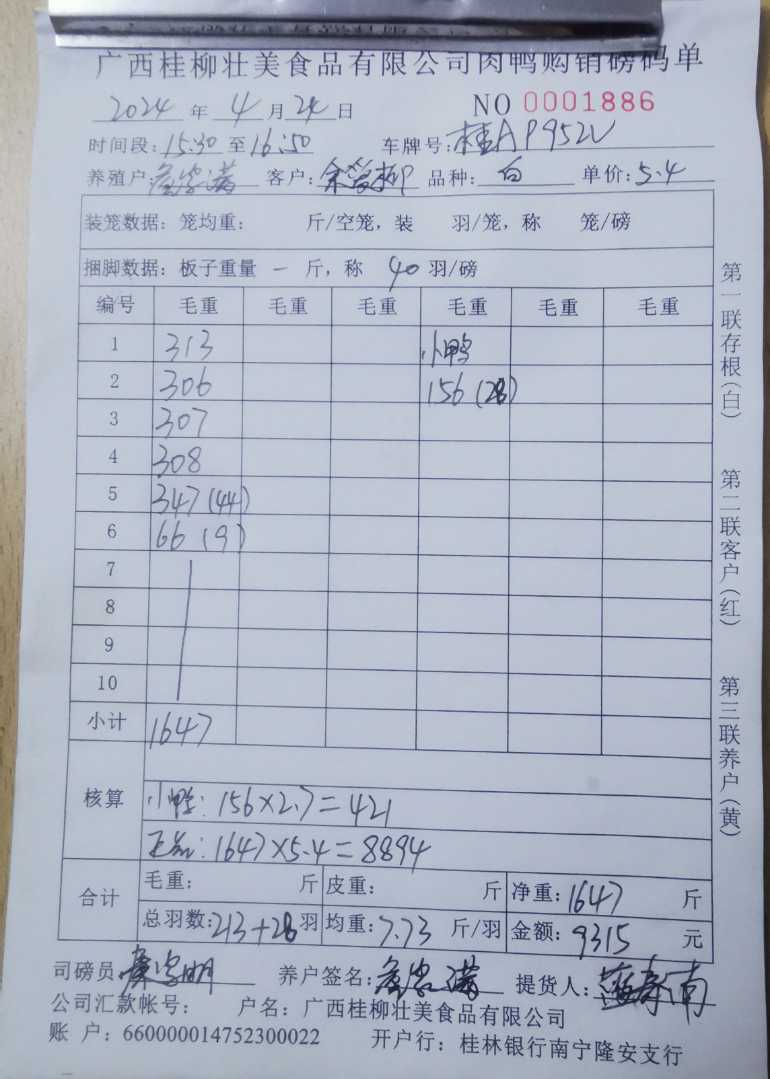 广西桂柳壮美食品有限公司肉鸭购销磅码单
2024 年 4 月 24 日 NO 0001886
时间段: 15:30 至 16:50 车牌号: 桂AP952V
养殖户: 客户: 品种: 白 单价: 5.4
装笼数据: 笼均重: 斤/空笼, 装 羽/笼, 称 笼/磅
捆脚数据: 板子重量 一 斤, 称 40 羽/磅
编号 毛重 毛重 毛重 毛重 毛重 毛重
1 313 小鸭
2 306 156 (28)
3 307
4 308
5 347 (44)
6 66 (9)
7
8
9
10
小计 1647
核算
小鸭: 156×2.7=421
正品: 1647×5.4=8894
合计 毛重: 斤 皮重: 斤 净重: 1647 斤
总羽数: 213+28 羽 均重: 7.73 斤/羽 金额: 9315 元
司磅员: 养户签名: 提货人:
公司汇款帐号: 户名: 广西桂柳壮美食品有限公司
账 户: 660000014752300022 开户行: 桂林银行南宁隆安支行
第一联存根(白) 第二联客户(红) 第三联养户(黄)